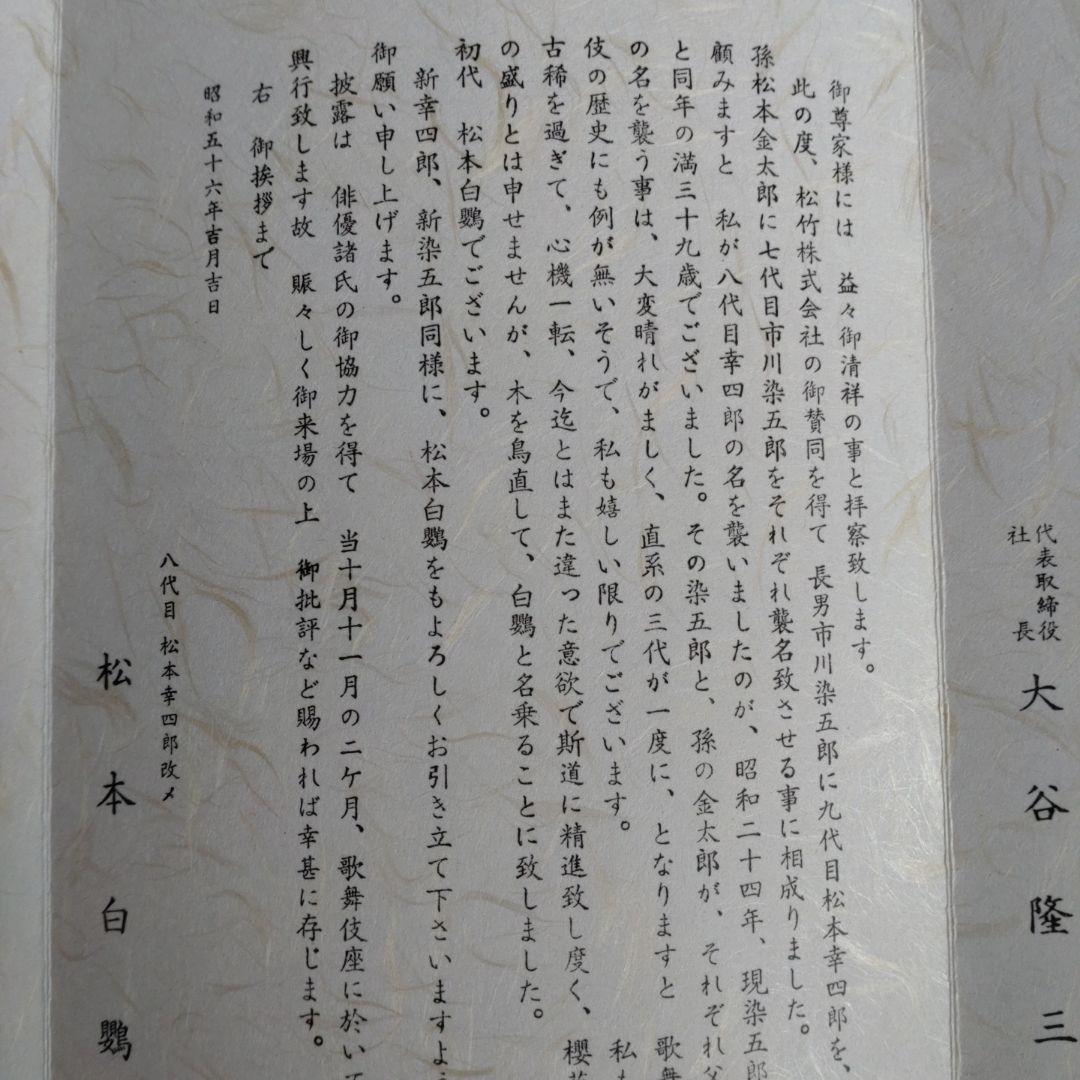 代表取締役
社長
大谷隆三
御尊家様には　益々御清祥の事と拝察致します。
此の度、松竹株式会社の御賛同を得て　長男市川染五郎に九代目松本幸四郎を、
孫松本金太郎に七代目市川染五郎をそれぞれ襲名致させる事に相成りました。
顧みますと　私が八代目幸四郎の名を襲いましたのが、昭和二十四年、現染五郎
と同年の満三十九歳でございました。その染五郎と、孫の金太郎が、それぞれ父
の名を襲う事は、大変晴れがましく、直系の三代が一度に、となりますと　歌舞
伎の歴史にも例が無いそうで、私も嬉しい限りでございます。　私も
古稀を過ぎて、心機一転、今迄とはまた違った意欲で斯道に精進致し度く、櫻花
の盛りとは申せませんが、木を鳥直して、白鸚と名乗ることに致しました。
初代　松本白鸚でございます。
新幸四郎、新染五郎同様に、松本白鸚をもよろしくお引き立て下さいますよう
御願い申し上げます。
披露は　俳優諸氏の御協力を得て　当十月十一月の二ケ月、歌舞伎座に於いて
興行致します故　賑々しく御来場の上　御批評など賜われば幸甚に存じます。
右　御挨拶まで
昭和五十六年吉月吉日
八代目　松本幸四郎改メ
松本白鸚